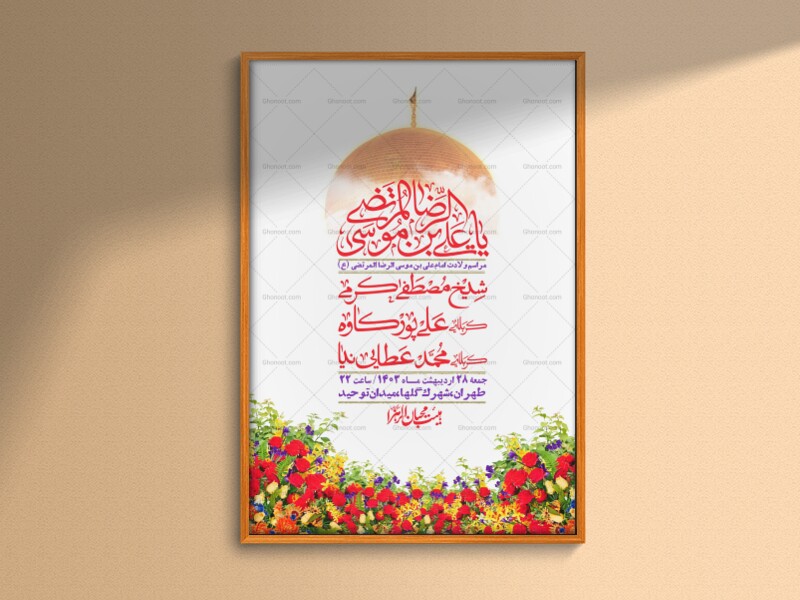 یا علی بن موسی الرضا المرتضی
مراسم ولادت امام علی بن موسی الرضا المرتضی (ع)
شیخ مصطفی کرمی
کربلایی علی پورکاوه
کربلایی محمد عطایی نیا
جمعه ۲۸ اردیبهشت ماه ۱۴۰۳ / ساعت ۲۲
طهران، شهرک گلها، میدان توحید
هیئت محبان الزهرا
Ghonoot.com